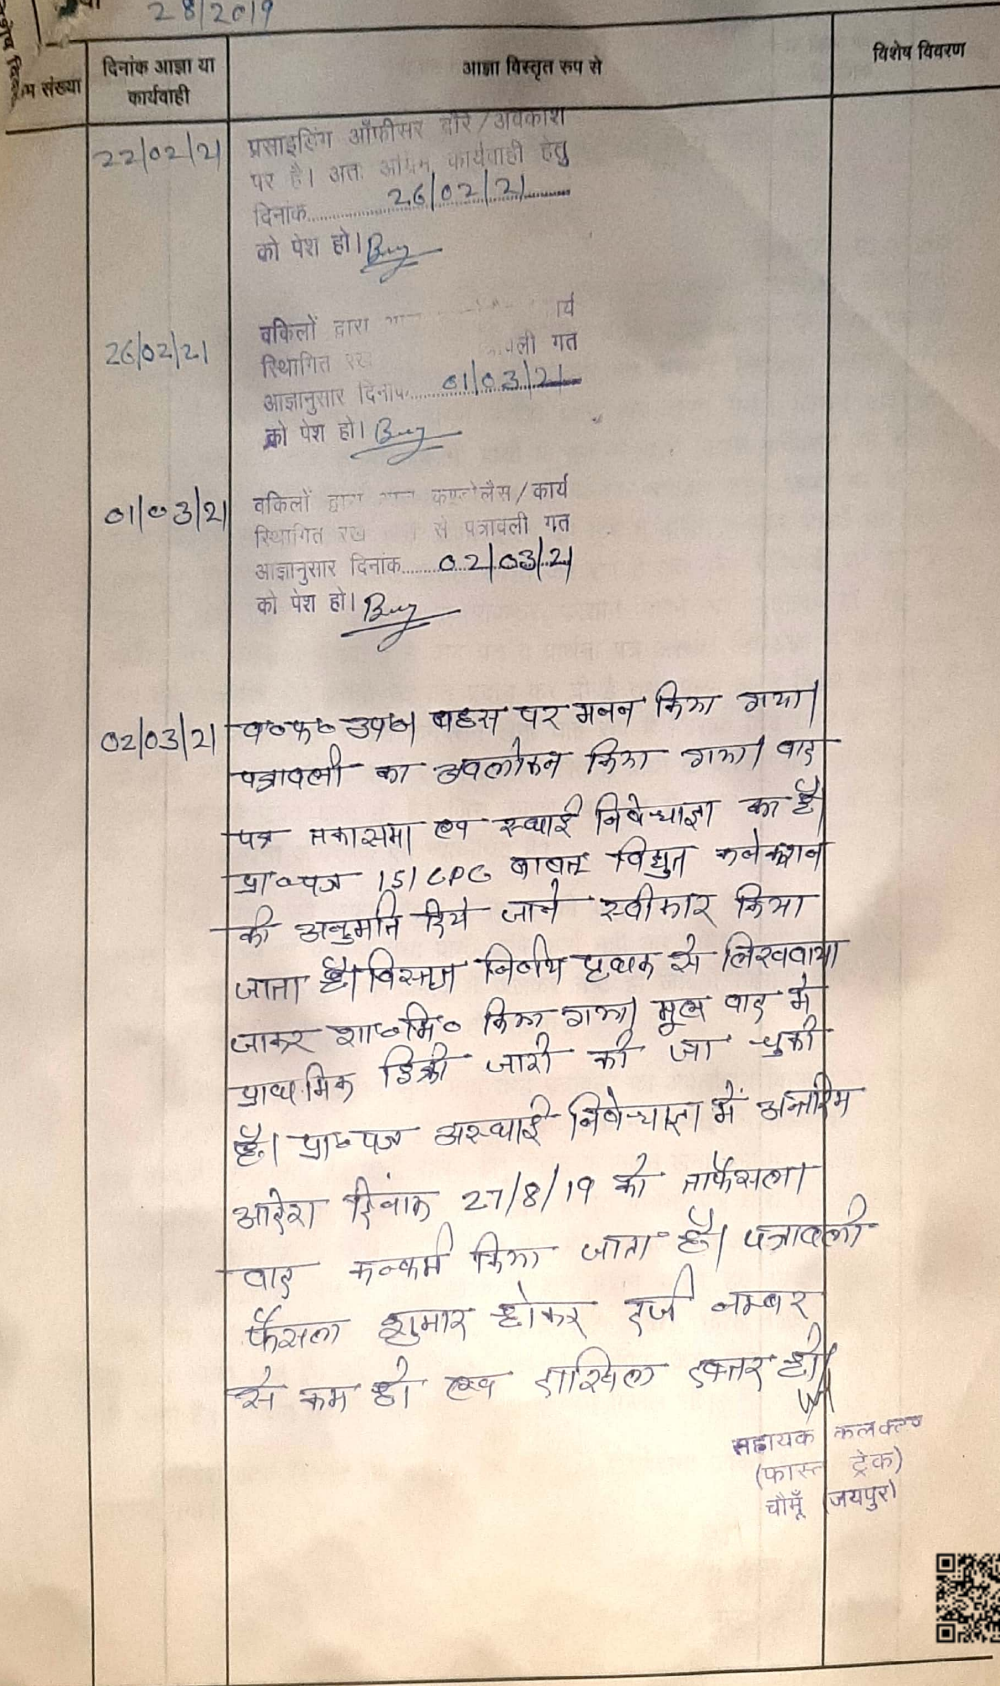 28/2019
दिनांक आज्ञा या
कार्यवाही
आज्ञा विस्तृत रुप से
विशेष विवरण
संख्या
22/02/21
प्रसाइडिंग ऑफीसर दौरे/अवकाश
पर है। अतः अग्रिम कार्यवाही हेतु
दिनांक 26/02/21
को पेश हो।
26/02/21
वकिलों द्वारा
स्थिागित रख गत
आज्ञानुसार दिनांक 01/03/21
को पेश हो।
01/03/21
वकिलों द्वारा कण्डोलैंस/कार्य
स्थिागित रख से पत्रावली गत
आज्ञानुसार दिनांक 02/03/21
को पेश हो।
02/03/21
व०फ० उप०। बहस पर मनन किया गया।
पत्रावली का अवलोकन किया गया। वाद
पत्र तकासमा एवं स्थाई निषेधाज्ञा का है।
प्रा०पत्र 151 CPC बाबत विद्युत कनेक्शन
की अनुमति दिये जाने स्वीकार किया
जाता है। विस्तृत निर्णय पृथक से लिखवाया
जाकर शा०मि० किया गया। मूल वाद में
प्राथमिक डिक्री जारी की जा चुकी
है। प्रा०पत्र अस्थाई निषेधाज्ञा में अन्तरिम
आदेश दिनांक 27/8/19 को ताफैसला
वाद कन्फर्म किया जाता है। पत्रावली
फैसला शुमार होकर दर्ज नम्बर
से कम हो एवं दाखिल दफ्तर हो।
सहायक कलक्टर
(फास्ट ट्रेक)
चौमूँ (जयपुर)